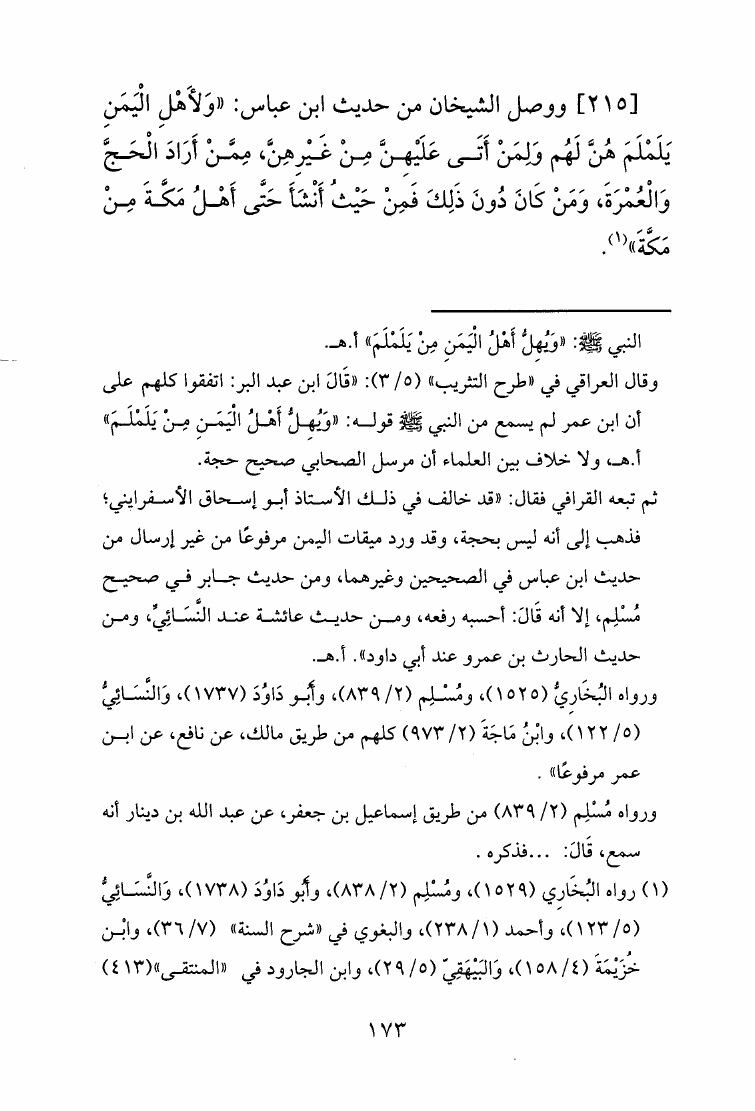 [٢١٥] ووصل الشيخان من حديث ابن عباس: «وَلأَهْلِ الْيَمَنِ
يَلَمْلَمَ هُنَّ لَهُم وَلِمَنْ أَتَـى عَلَيْهِـنَّ مِـنْ غَـيْرِهِنَّ، مِمَّـنْ أَرَادَ الْحَـجَّ
وَالْعُمْرَةَ، وَمَنْ كَانَ دُونَ ذَلِكَ فَمِنْ حَيْثُ أَنْشَأَ حَتَّى أَهْـلُ مَكَّـةَ مِـنْ
مَكَّةَ»(١).
النبي ﷺ: «وَيُهِلُّ أَهْلُ الْيَمَنِ مِنْ يَلَمْلَمَ» أ.هـ.
وقال العراقي في «طرح التثريب» (٣/٥): «قَالَ ابن عبد البر: اتفقوا كلهم على
أن ابن عمر لم يسمع من النبي ﷺ قولـه: «وَيُهِـلُّ أَهْـلُ الْيَمَـنِ مِـنْ يَلَمْلَـمَ»
أ.هـ، ولا خلاف بين العلماء أن مرسل الصحابي صحيح حجة.
ثم تبعه القرافي فقال: «قد خالف في ذلـك الأسـتاذ أبـو إسـحاق الأسـفرايني؛
فذهب إلى أنه ليس بحجة، وقد ورد ميقات اليمن مرفوعًا من غير إرسال من
حديث ابن عباس في الصحيحين وغيرهما، ومن حديث جـابر فـي صحيـح
مُسْلِم، إلا أنه قَالَ: أحسبه رفعه، ومـن حديـث عائشـة عنـد النَّسَـائِيِّ، ومـن
حديث الحارث بن عمرو عند أبي داود». أ.هـ.
ورواه البُخَارِيُّ (١٥٢٥)، ومُسْـلِم (٨٣٩/٢)، وأَبُـو دَاوُدَ (١٧٣٧)، وَالنَّسَـائِيُّ
(١٢٢/٥)، وابْنُ مَاجَةَ (٩٧٣/٢) كلهم من طريق مالك، عن نافع، عن ابـن
عمر مرفوعًا» .
ورواه مُسْلِم (٨٣٩/٢) من طريق إسماعيل بن جعفر، عن عبد الله بن دينار أنه
سمع، قَالَ: ...فذكره .
(١) رواه البُخَارِي (١٥٢٩)، ومُسْلِم (٨٣٨/٢)، وأَبُو دَاوُدَ (١٧٣٨)، وَالنَّسَـائِيُّ
(١٢٣/٥)، وأحمد (٢٣٨/١)، والبغوي في «شرح السنة» (٣٦/٧)، وابْـن
خُزَيْمَةَ (١٥٨/٤)، وَالبَيْهَقِيّ (٢٩/٥)، وابن الجارود في «المنتقـى»(٤١٣)
١٧٣